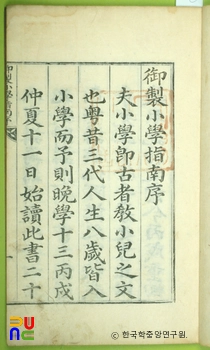 御製小學指南序
夫小學卽古者敎小兒之文
也粤昔三代人生八歲皆入
小學而予則晩學十三丙戌
仲夏十一日始讀此書二十
한국학중앙연구원